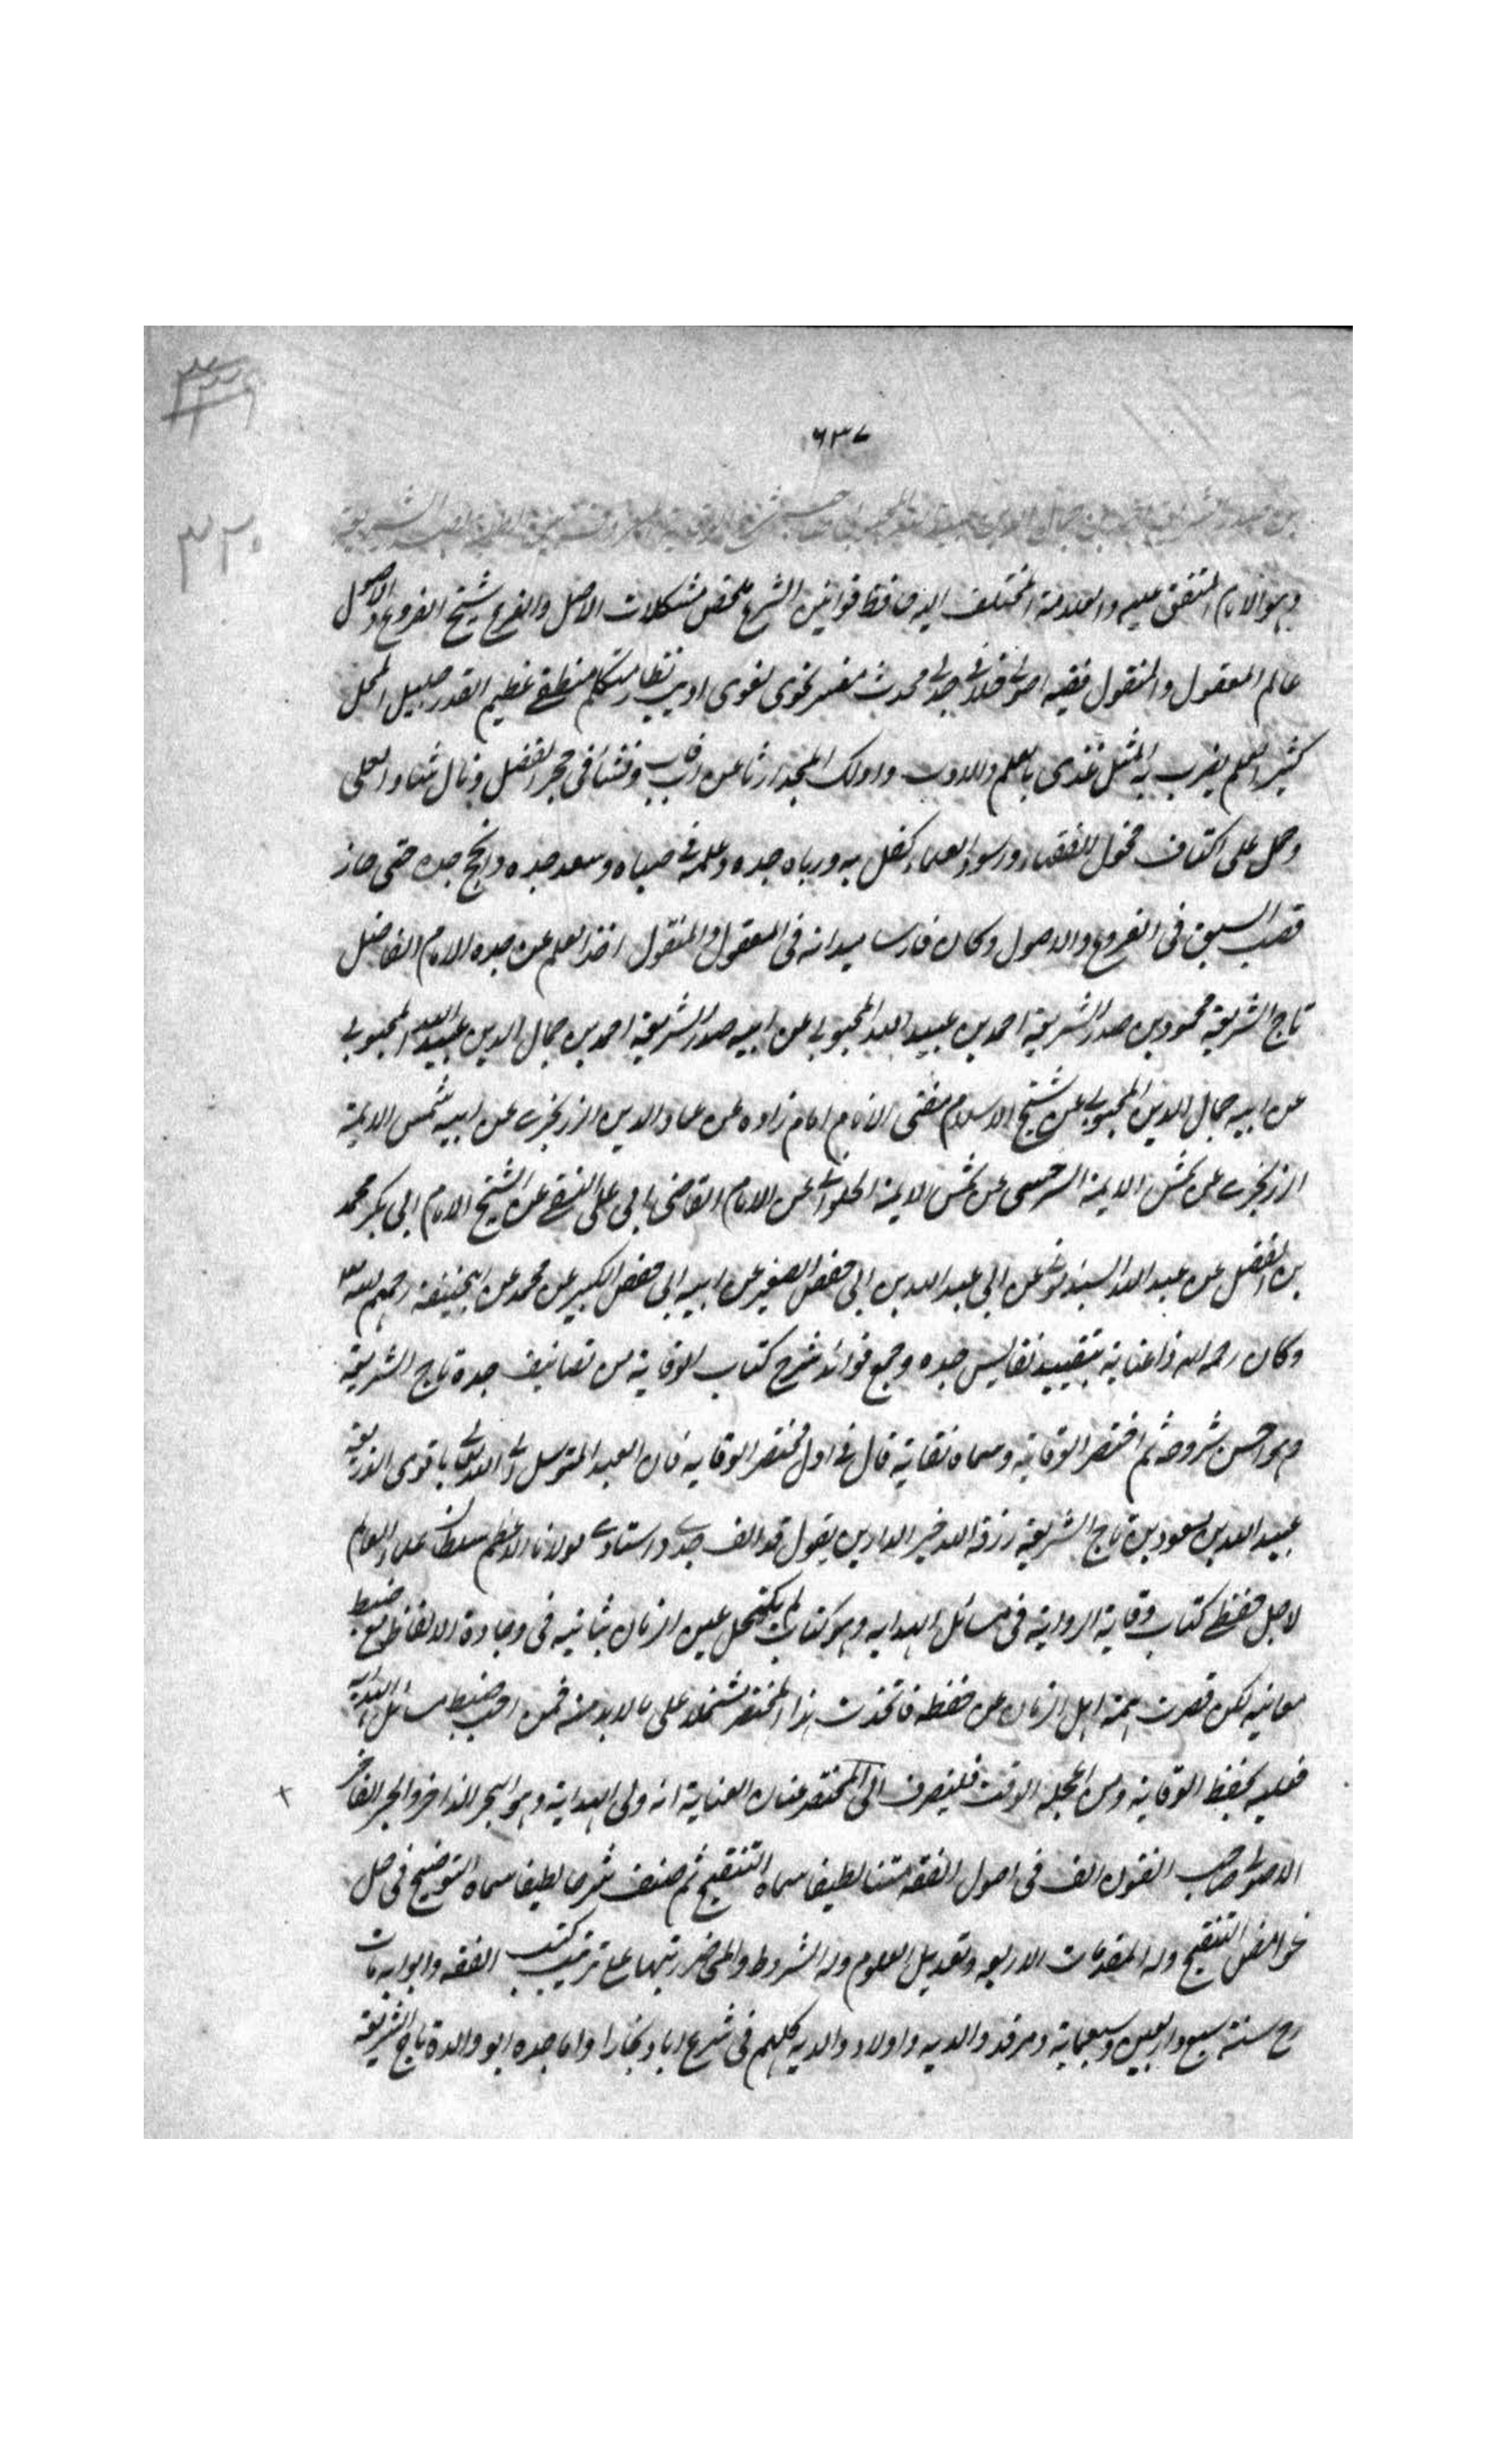 ٦٣٧
٣٢٠
بن صدر الشريعة احمد بن جمال الدين عبيد الله المحبوبي صاحب شرح الوقاية
وهو الامام المتفق عليه والعلامة المختلف اليه حافظ قوانين الشرع ملخص مشكلات الاصل والفرع شيخ الفروع والاصول
عالم المعقول والمنقول فقيه اصولي خلافي جدلي محدث مفسر نحوى لغوى اديب نظار متكلم منطقي عظيم القدر جليل المحل
كثير العلم يضرب به المثل غذى بالعلم والادب وادرك المجد ارثا عن اب فاب ونشا في حجر الفضل ونال العلى
وحل على اكتاف فحول الفقهاء ورءوس العلماء كفل به ورباه جده وعلمه في صباه وسعد جده وانجح جده حتى حاز
قصب السبق في الفروع والاصول وكان فارس ميدانه في المعقول والمنقول اخذ العلم عن جده الامام الفاضل
تاج الشريعة محمود بن صدر الشريعة احمد بن عبيد الله المحبوبي عن ابيه صدر الشريعة احمد بن جمال الدين عبيد الله المحبوبي
عن ابيه جمال الدين المحبوبي عن شيخ الاسلام مفتى الانام امام زاده عن عماد الدين الزرنجرى عن ابيه شمس الايمة
الزرنجرى عن شمس الايمة السرخسى عن شمس الايمة الحلوائي عن الامام القاضى ابى على النسفي عن الشيخ الامام ابى بكر محمد
بن الفضل عن عبد الله السبذمونى عن ابى عبد الله بن ابى حفص الصغير عن ابيه ابى حفص الكبير عن محمد عن ابيحنيفة رحمهم الله
وكان رحمه الله ذا عناية بتقييد نفايس جده وجمع فوائد شرح كتاب الوقاية من تصانيف جده تاج الشريعة
وهو احسن شروحه ثم اختصر الوقاية وسماه نقاية قال في اول مختصر الوقاية فان العبد المتوسل الى الله تعالى باقوى الذريعة
عبيد الله بن مسعود بن تاج الشريعة رزقه الله خير الدارين يقول قد الف جدى واستادى مولانا الاعظم سلطان علماء العالم
لاجل حفظى كتاب وقاية الرواية في مسائل الهداية وهو كتاب لم يكتحل عين الزمان بثانيه في وجازة الالفاظ مع ضبط
معانيه لكن قصرت همة اهل الزمان عن حفظه فاتخذت هذا المختصر مشتملا على ما لابد منه فمن احب ضبط مسائل الهداية
فعليه بحفظ الوقاية ومن اعجله الوقت فليصرف الى المختصر عنان العناية انه ولى الهداية وهو البحر الزاخر والحبر الفاخر
الاصولى صاحب الفنون الف في اصول الفقه متنا لطيفا سماه التنقيح ثم صنف شرحا لطيفا سماه التوضيح في حل
غوامض التنقيح وله المقدمات الاربعة وتعديل العلوم وله الشروط والمحاضر رتبها على ترتيب كتب الفقه وابوابه مات
رح سنة سبع واربعين وسبعماية ومرقد والديه واولاد والديه كلهم في شرع اباد بخارا واما جده ابو والدة تاج الشريعة